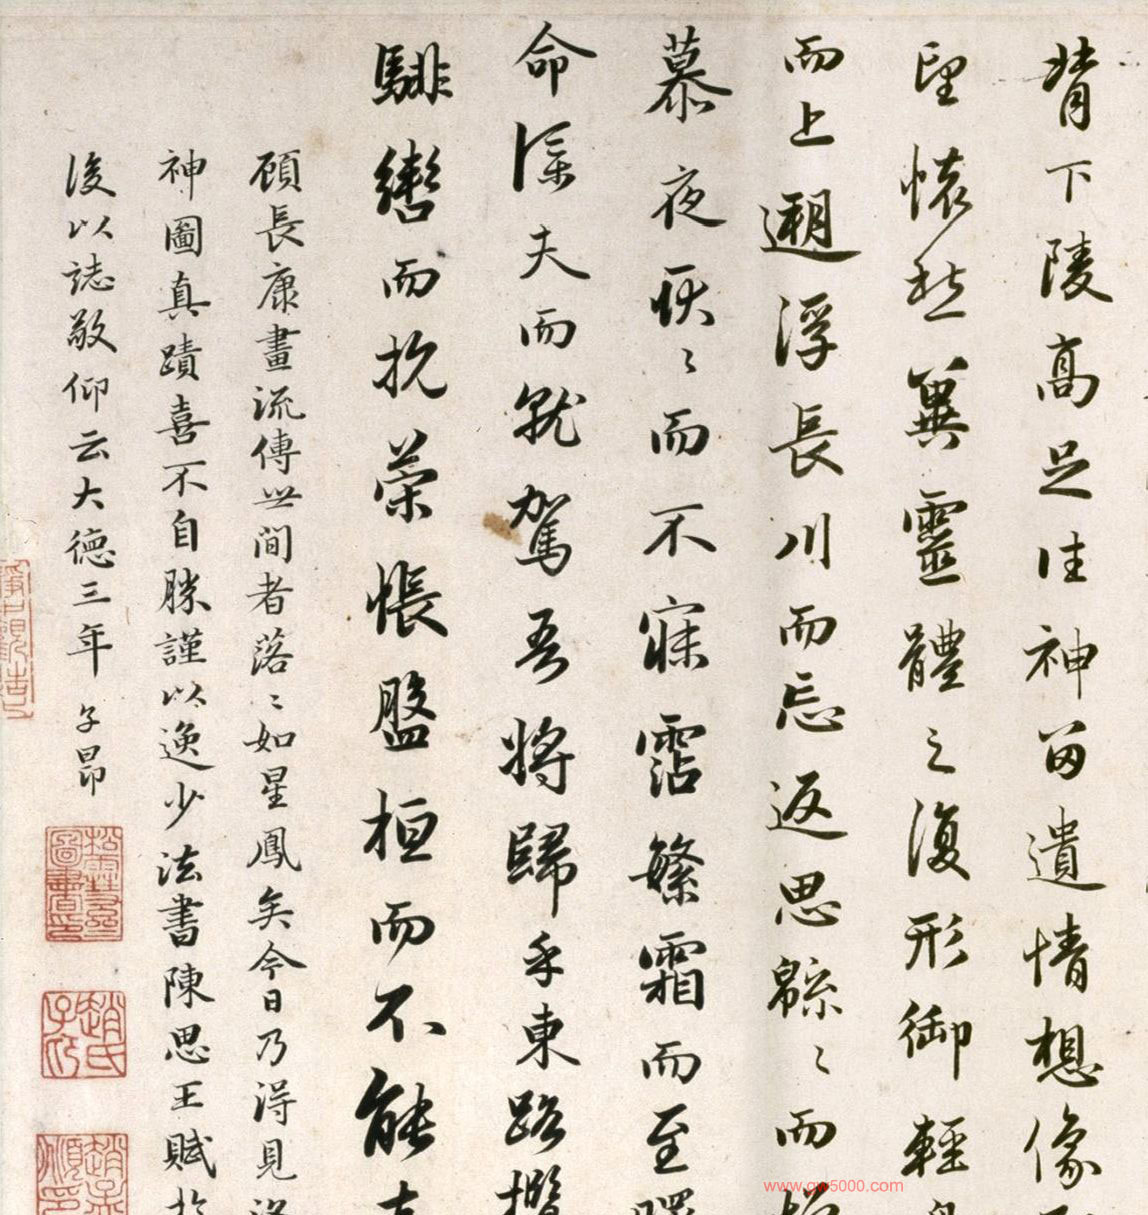 背下陵高足往神留遺情想像
望懷愁冀靈體之復形御輕
而上遡浮長川而忘返思緜〻而
慕夜耿〻而不寐霑繁霜而至曙
命僕夫而就駕吾將歸乎東路攬
騑轡而抗策悵盤桓而不能去
顧長康畫流傳世間者落〻如星鳳矣今日乃得見洛
神圖真蹟喜不自勝謹以逸少法書陳思王賦於
後以誌敬仰云大德三年子昂
趙氏子昂
www.gw5000.com